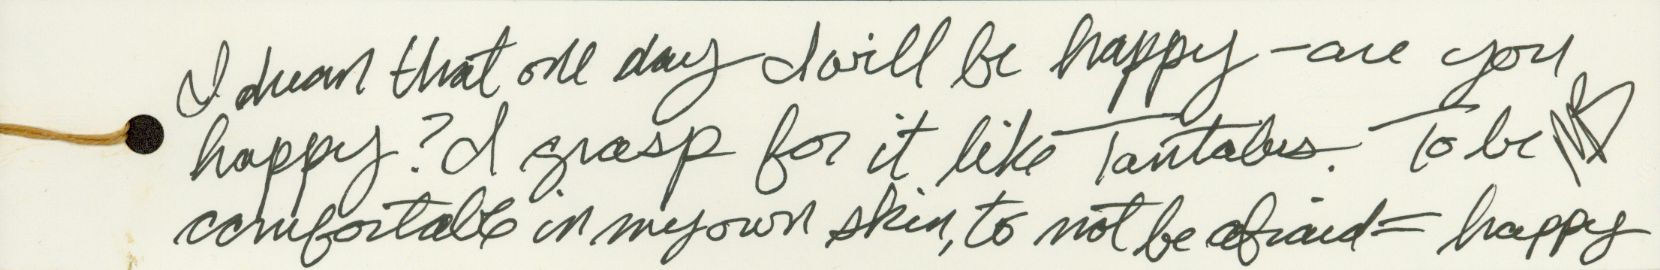 I dream that one day I will be happy - are you
happy? I grasp for it like Tantalus. To be
comfortable in my own skin, to not be afraid = happy